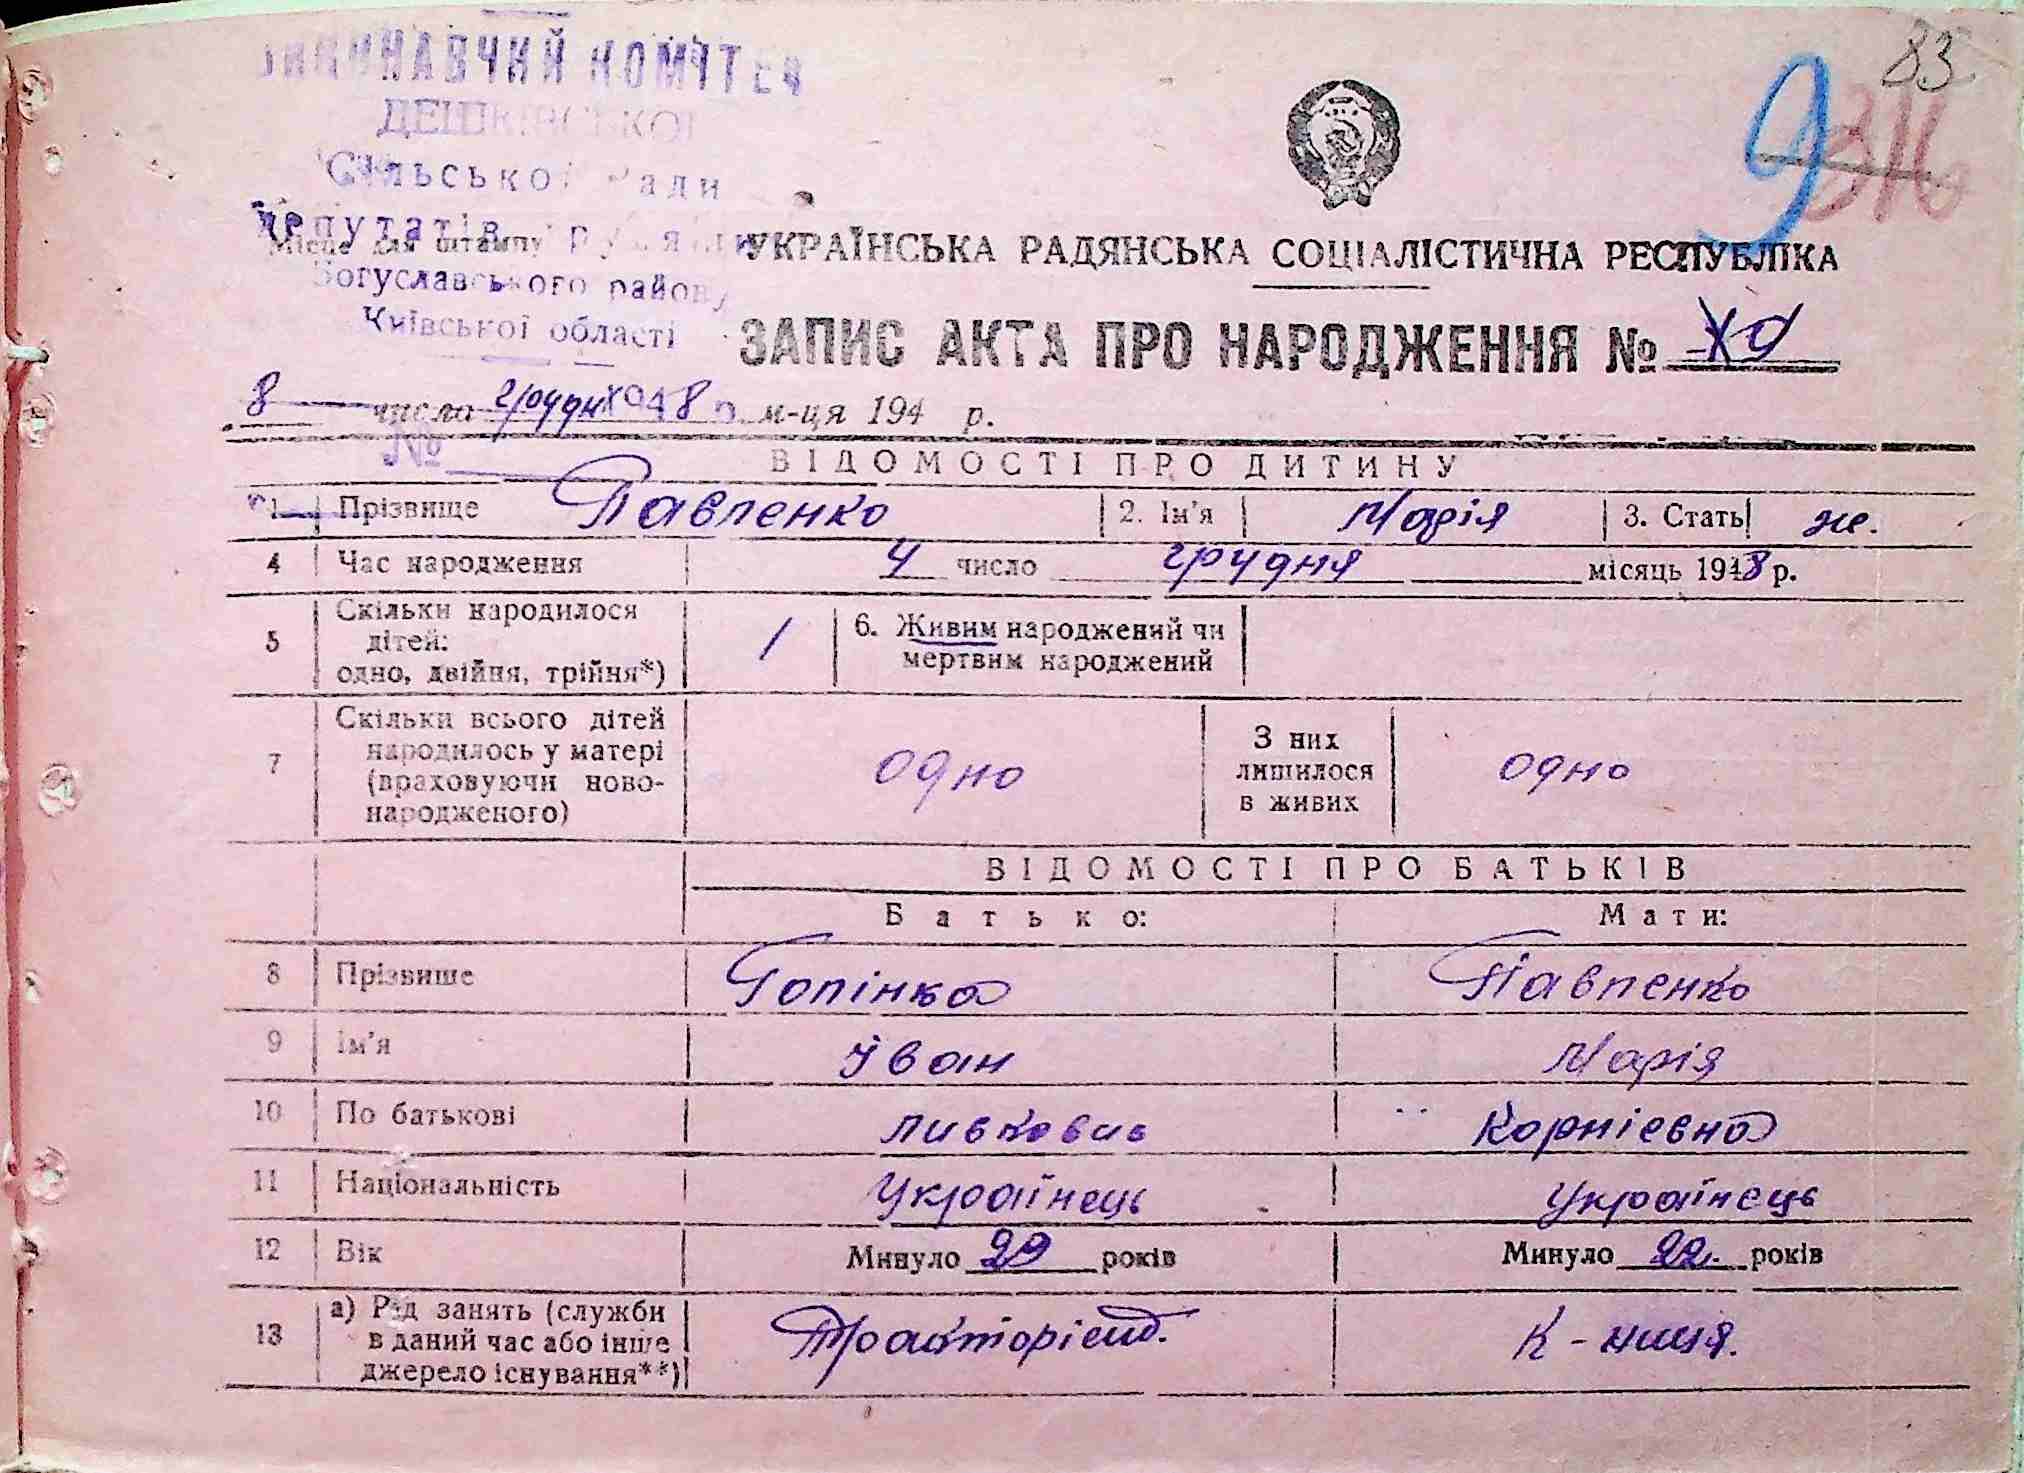 ВИКОНАВЧИЙ КОМІТЕТ
ДЕШКІВСЬКОЇ
Сільської Ради
депутатів трудящих
Місце для штампу
Богуславського району
Київської області
83
9
316
УКРАЇНСЬКА РАДЯНСЬКА СОЦІАЛІСТИЧНА РЕСПУБЛІКА
ЗАПИС АКТА ПРО НАРОДЖЕННЯ №
8 числа грудня 1948 р. м-ця 194 р.
№
ВІДОМОСТІ ПРО ДИТИНУ
1 Прізвище Павленко 2. Ім'я Марія 3. Стать ж.
4 Час народження 4 число грудня місяць 1948 р.
5 Скільки народилося дітей: одно, двійня, трійня*) 1 6. Живим народжений чи мертвим народжений
7 Скільки всього дітей народилось у матері (враховуючи ново-народженого) одно З них лишилося в живих одно
ВІДОМОСТІ ПРО БАТЬКІВ
Батько: Мати:
8 Прізвище Гопінка Павленко
9 Ім'я Іван Марія
10 По батькові Корніевна
11 Національність Українець Українець
12 Вік Минуло 29 років Минуло 22. років
13 а) Рід занять (служби в даний час або інше джерело існування**) Тракторіст. К-ниця.